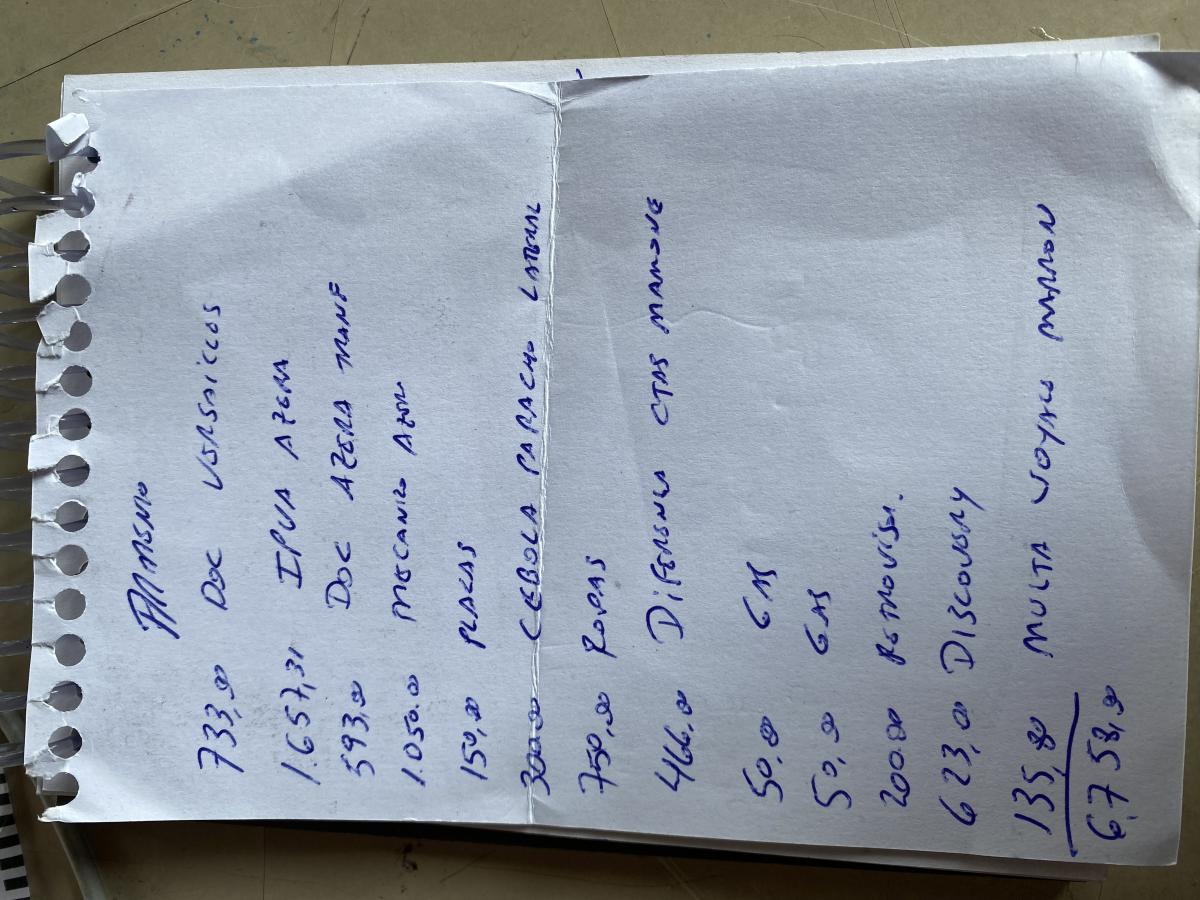 733,00 DOC VERSAILLES
1.657,31 IPVA AZERA
593,00 DOC AZERA TRANF
1.050.00 MECANICO AZERA
150,00 PLACAS
300.00 CEBOLA PARACHO LATERAL
750,00 RODAS
466.00 DIFERENCA CTAS MAMONE
50.00 GAS
50,00 GAS
200.00 RETROVISR.
623,00 DISCOVERY
135,80 MULTA VOYAGE MARRON
6.758,00